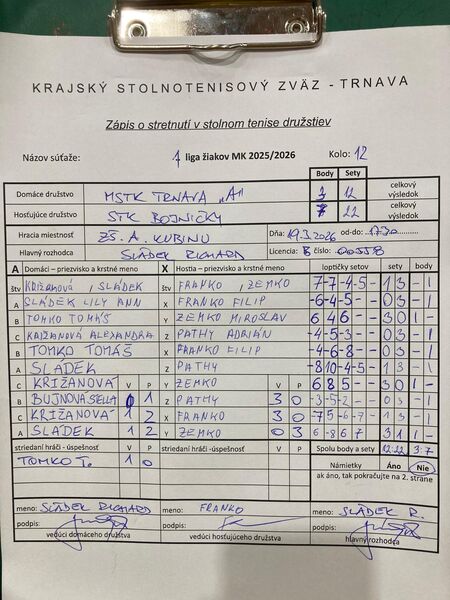 KRAJSKÝ STOLNOTENISOVÝ ZVÄZ - TRNAVA
Zápis o stretnutí v stolnom tenise družstiev
Názov súťaže: 1 liga žiakov MK 2025/2026 Kolo: 12
Body Sety
Domáce družstvo MSTK TRNAVA "A" 3 12 celkový výsledok
Hosťujúce družstvo STK BOJNIČKY 7 22 celkový výsledok
Hracia miestnosť ZŠ. A. KUBINU Dňa: 19.3.2026 od-do: 1730
Hlavný rozhodca SLÁDEK RICHARD Licencia: B číslo: 00558
A Domáci – priezvisko a krstné meno X Hostia – priezvisko a krstné meno loptičky setov sety body
štv KRIŽANOVÁ, SLÁDEK štv FRANKO, ZEMKO 7-7 4-5 - 1 3 - 1
A SLÁDEK LILY ANN X FRANKO FILIP -6-4-5 - - 0 3 - 1
B TOMKO TOMÁŠ Y ZEMKO MIROSLAV 6 4 6 - - 3 0 1 -
C KRIŽANOVÁ ALEXANDRA Z PATHY ADRIÁN -4-5-3 - - 0 3 - 1
B TOMKO TOMÁŠ X FRANKO FILIP -4-6-8 - - 0 3 - 1
A SLÁDEK Z PATHY -8 10-4-5 - 1 3 - 1
C KRIŽANOVÁ V P Y ZEMKO V P 6 8 5 - - 3 0 1 -
B BUJNOVÁ STELLA 0 1 Z PATHY 3 0 -3-5-2 - - 0 3 - 1
C KRIŽANOVÁ 1 2 X FRANKO 3 0 -7 5 -6-7 - 1 3 - 1
A SLÁDEK 1 2 Y ZEMKO 0 3 6 -8 6 7 3 1 1 -
striedaní hráči - úspešnosť V P striedaní hráči -úspešnosť V P Spolu body a sety 12:22 3:7
TOMKO T. 1 0 Námietky Áno Nie
ak áno, tak pokračujte na 2. strane
meno: SLÁDEK RICHARD meno: FRANKO meno: SLÁDEK R.
podpis: podpis: podpis:
vedúci domáceho družstva vedúci hosťujúceho družstva hlavný rozhodca